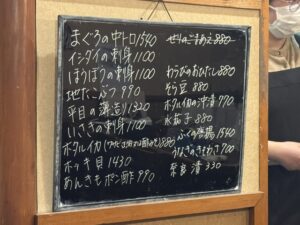 まぐろの中トロ 1540
イシダイの刺身 1100
ほうぼうの刺身 1100
地だこぶつ 990
平目の薄造り 1320
いさきの刺身 1100
ホタルイカ 880
ホッキ貝 1430
あんきもポン酢 990
せりのごまあえ 880
わらびのおひたし 880
そら豆 880
ホタルイカの沖漬 770
水茄子 880
ふぐの唐揚 1540
うなぎのきもわさ 900
奈良漬 330